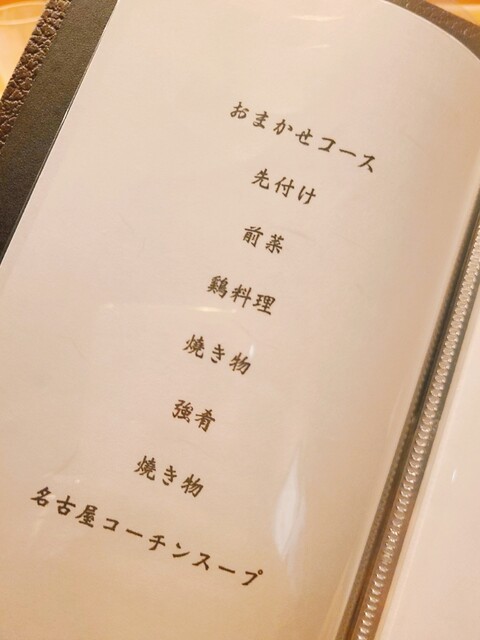 おまかせコース
先付け
前菜
鶏料理
焼き物
強肴
焼き物
名古屋コーチンスープ